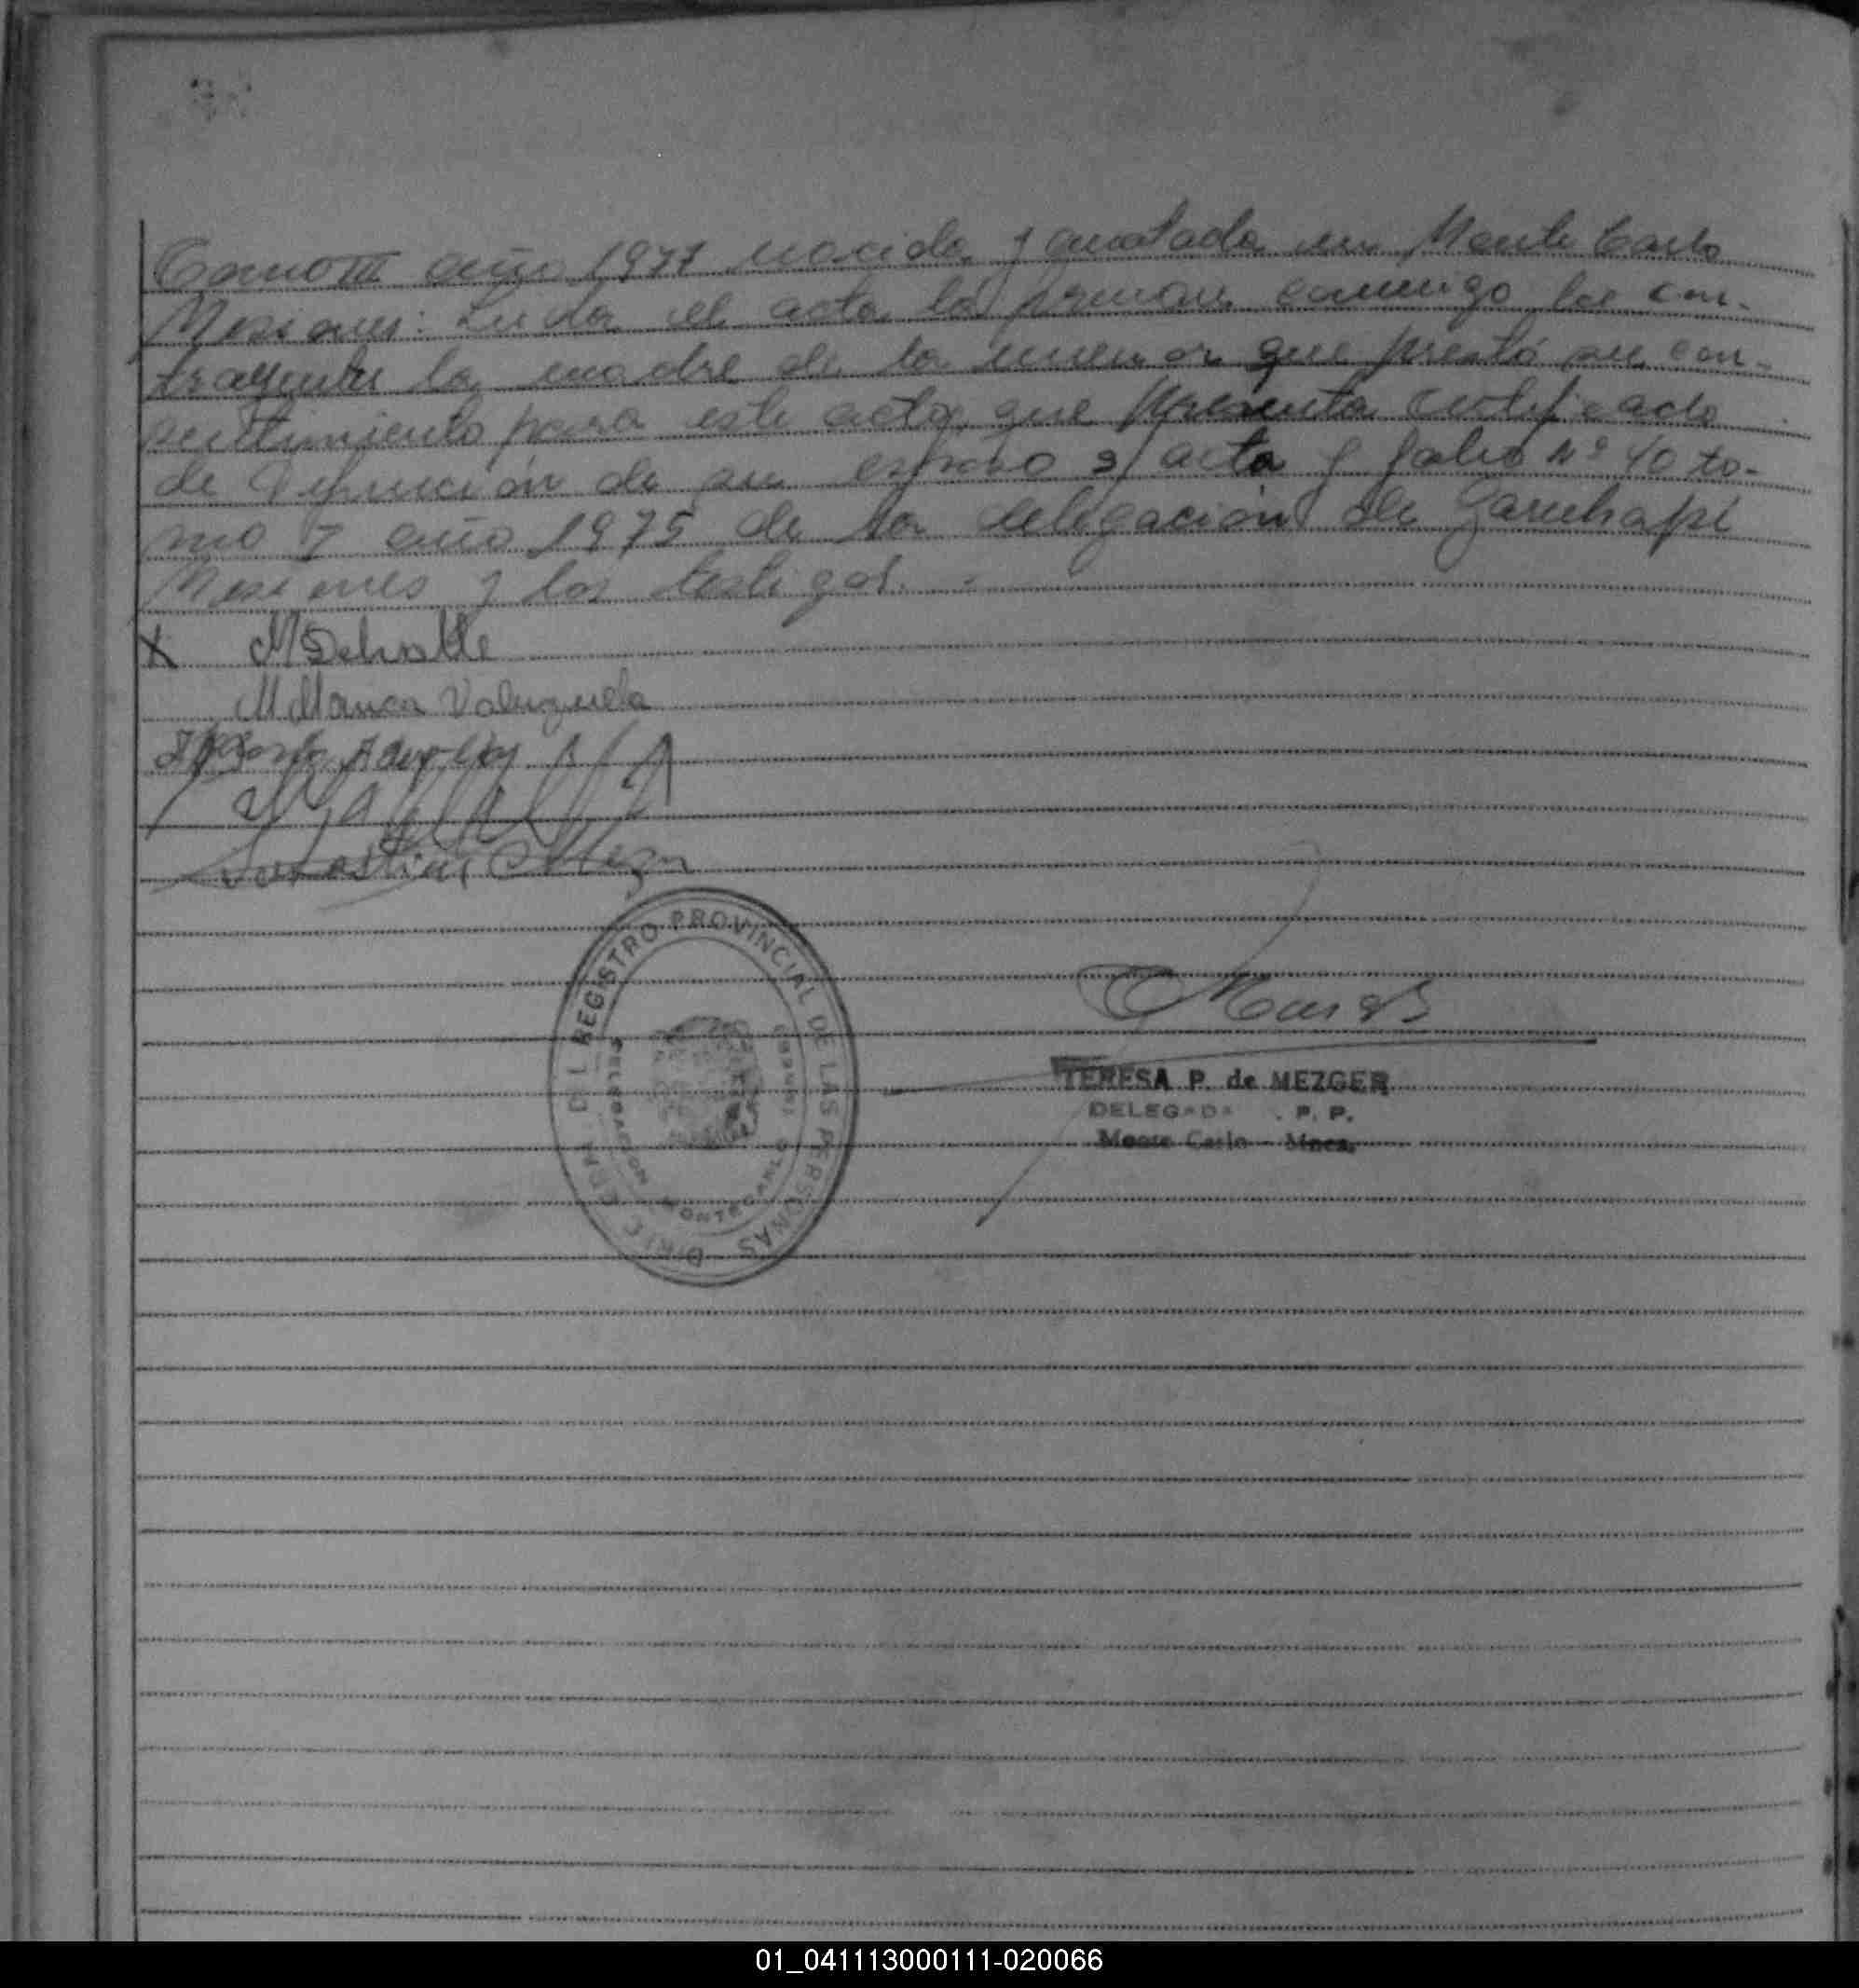 Tomo III año 1977 nacida y anotada en Monte Carlo
Misiones: Leida el acta la firman conmigo los con-
trayentes la madre de la menor que prestó su con-
sentimiento para este acto, que presenta certificado
de defunción de su esposo s/ acta y folio Nº 40 to-
mo 7 año 1975 de la delegación de Garuhapé
Misiones y los testigos. -
X M Delvalle
M Blanca Valenzuela
REGISTRO PROVINCIAL DE LAS PERSONAS
MONTECARLO
TERESA P. de MEZGER
DELEGADA . P. P.
Monte Carlo - Mnes.
01_041113000111-020066